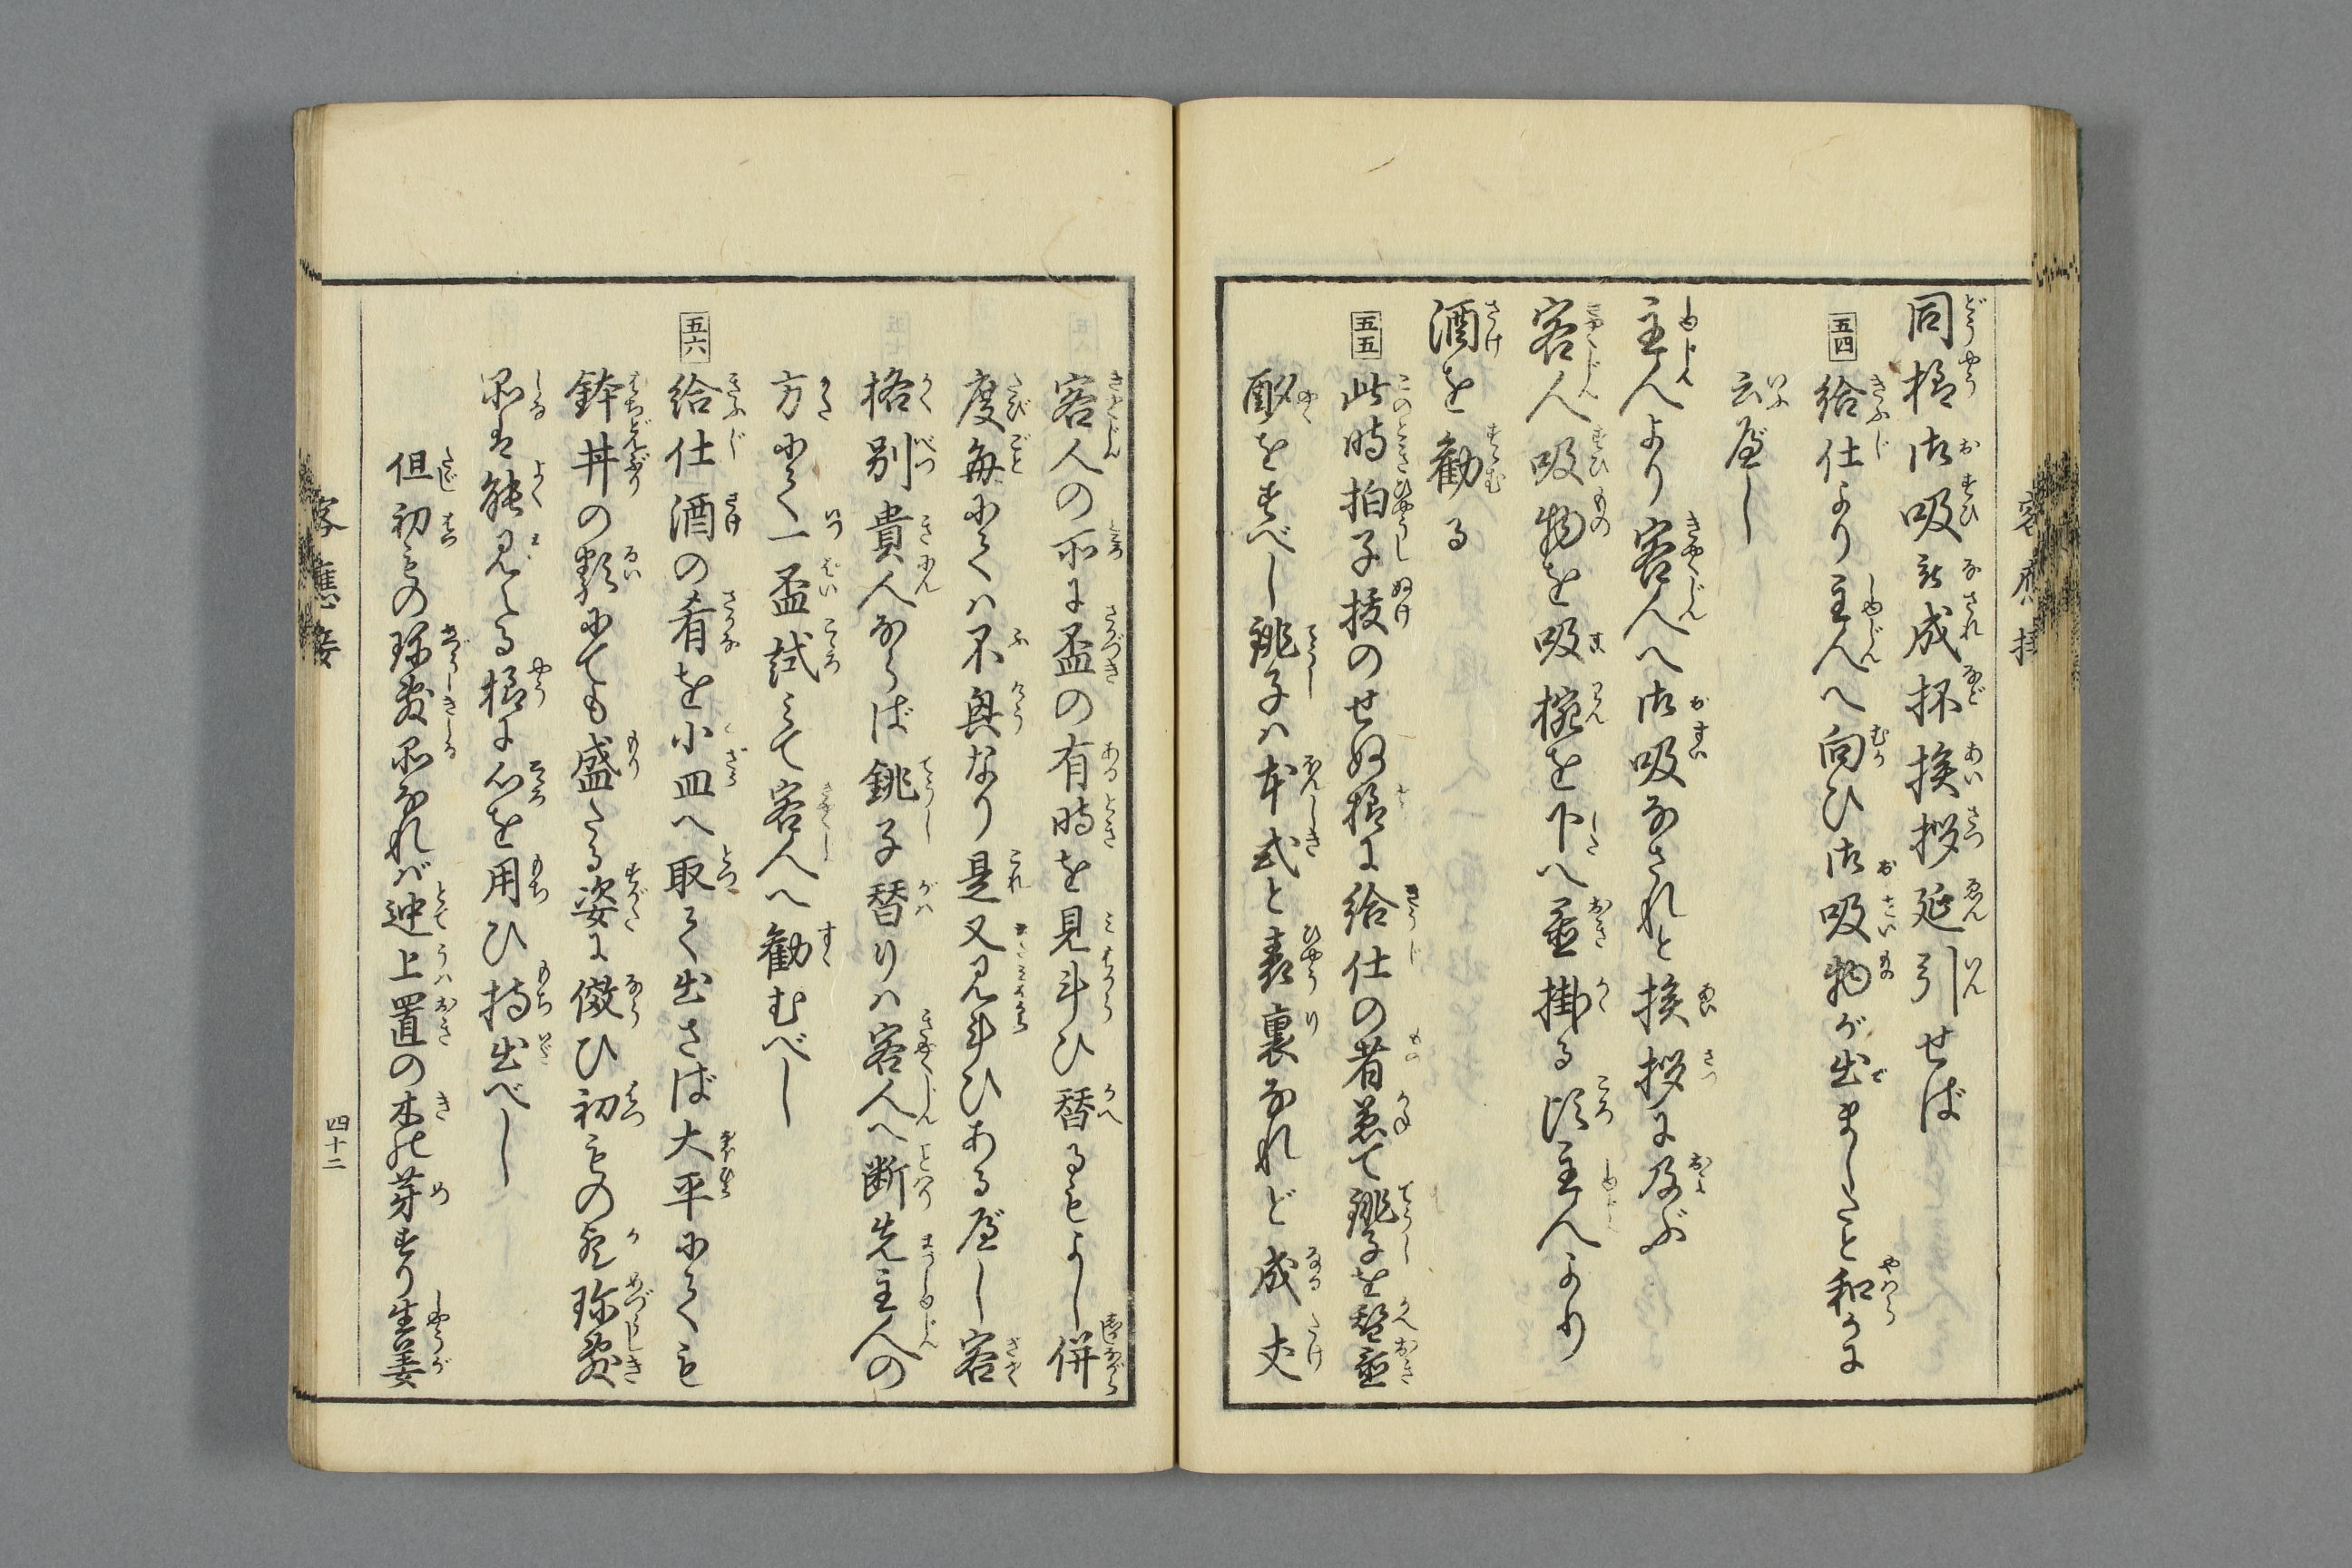 同様御吸被成抔挨拶延引せば
五四
給仕より主人へ向ひ御吸物が出ましたと和らかに
云べし
主人より客人へ御吸なされと挨拶に及ぶ
客人吸物を吸椀を下へ置掛る比主人より
酒を勧る
五五
此時拍子抜のせぬ様に給仕の者兼て銚子を替置
酌をすべし銚子ハ本式と表裏なれど成丈
客人の前に盃の有時を見斗ひ替るもよし併
度毎にてハ不興なり是又見斗ひある べし客
格別貴人ならば銚子替りハ客人へ断先主人の
方にて一盃試みて客人へ勧むべし
五六
給仕酒の肴を小皿へ取て出さば大平にても
鉢丼の類にても盛たる姿に傚ひ初もの歟珍敷
品は能見へる様に心を用ひ持出べし
但初もの珍敷品なれバ迚上置の木の芽すり生姜
客應接
四十二